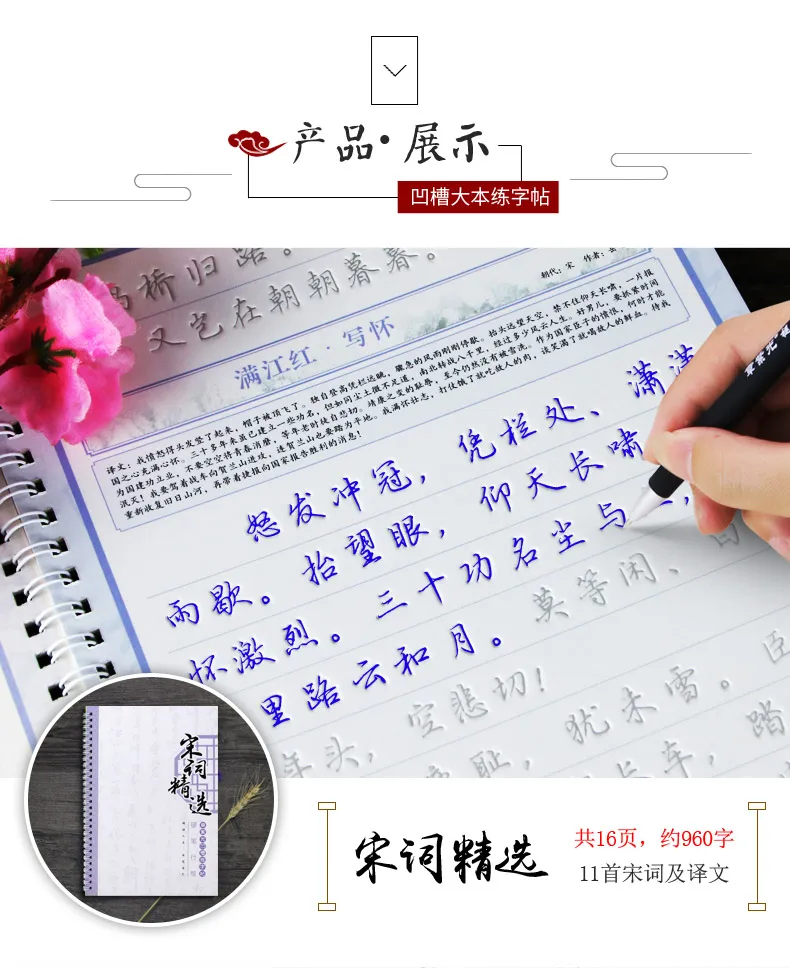 产品·展示
凹槽大本练字帖
桥归路。
又岂在朝朝暮暮。
满江红·写怀
朝代:宋 作者:岳
译文:我愤怒得头发竖了起来,帽子被顶飞了。独自登高凭栏远眺,骤急的风雨刚刚停歇。抬头远望天空,禁不住仰天长啸,一片报
国之心充满心怀。三十多年来虽已建立一些功名,但如同尘土微不足道,南北转战八千里,经过多少风云人生。好男儿,要抓紧时间
为国建功立业,不要空空将青春消磨,等年老时徒自悲切。靖康之变的耻辱,至今仍然没有被雪洗。作为国家臣子的愤恨,何时才能
泯灭!我要驾着战车向贺兰山进攻,连贺兰山也要踏为平地。我满怀壮志,打仗饿了就吃敌人的肉,谈笑渴了就喝敌人的鲜血。待我
重新收复旧日山河,再带着捷报向国家报告胜利的消息!
怒发冲冠,凭栏处、潇潇
雨歇。抬望眼,仰天长啸
怀激烈。三十功名尘与
里路云和月。莫等闲、白
年头,空悲切!
耻,犹未雪。臣
车,踏
宋词精选
宋词精选
共16页,约960字
11首宋词及译文